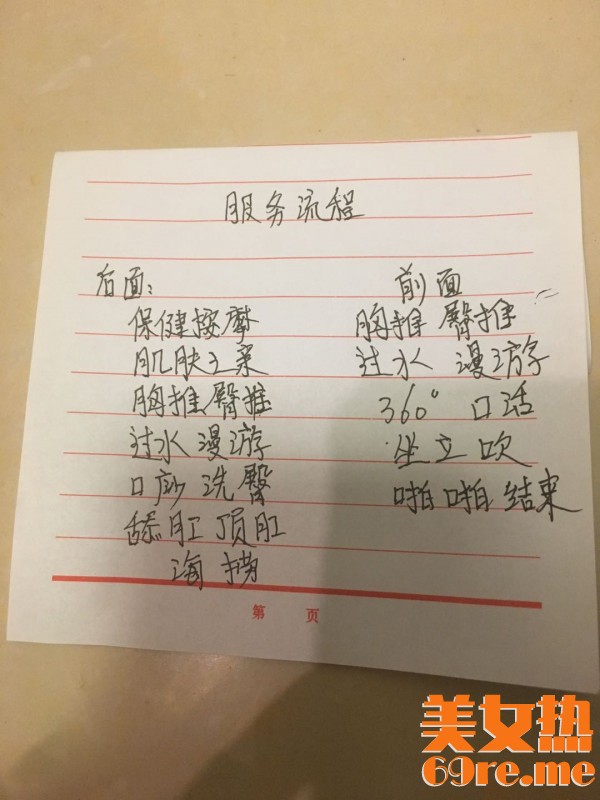 服务流程
后面：
保健按摩
肌肤之亲
胸推臀推
过水 漫游
口爽 洗臀
舔肛 顶肛
海捞
前面
胸推 臀推
过水 漫游
360° 口活
坐立吹
啪啪 结束
第 页
美女热
69re.me